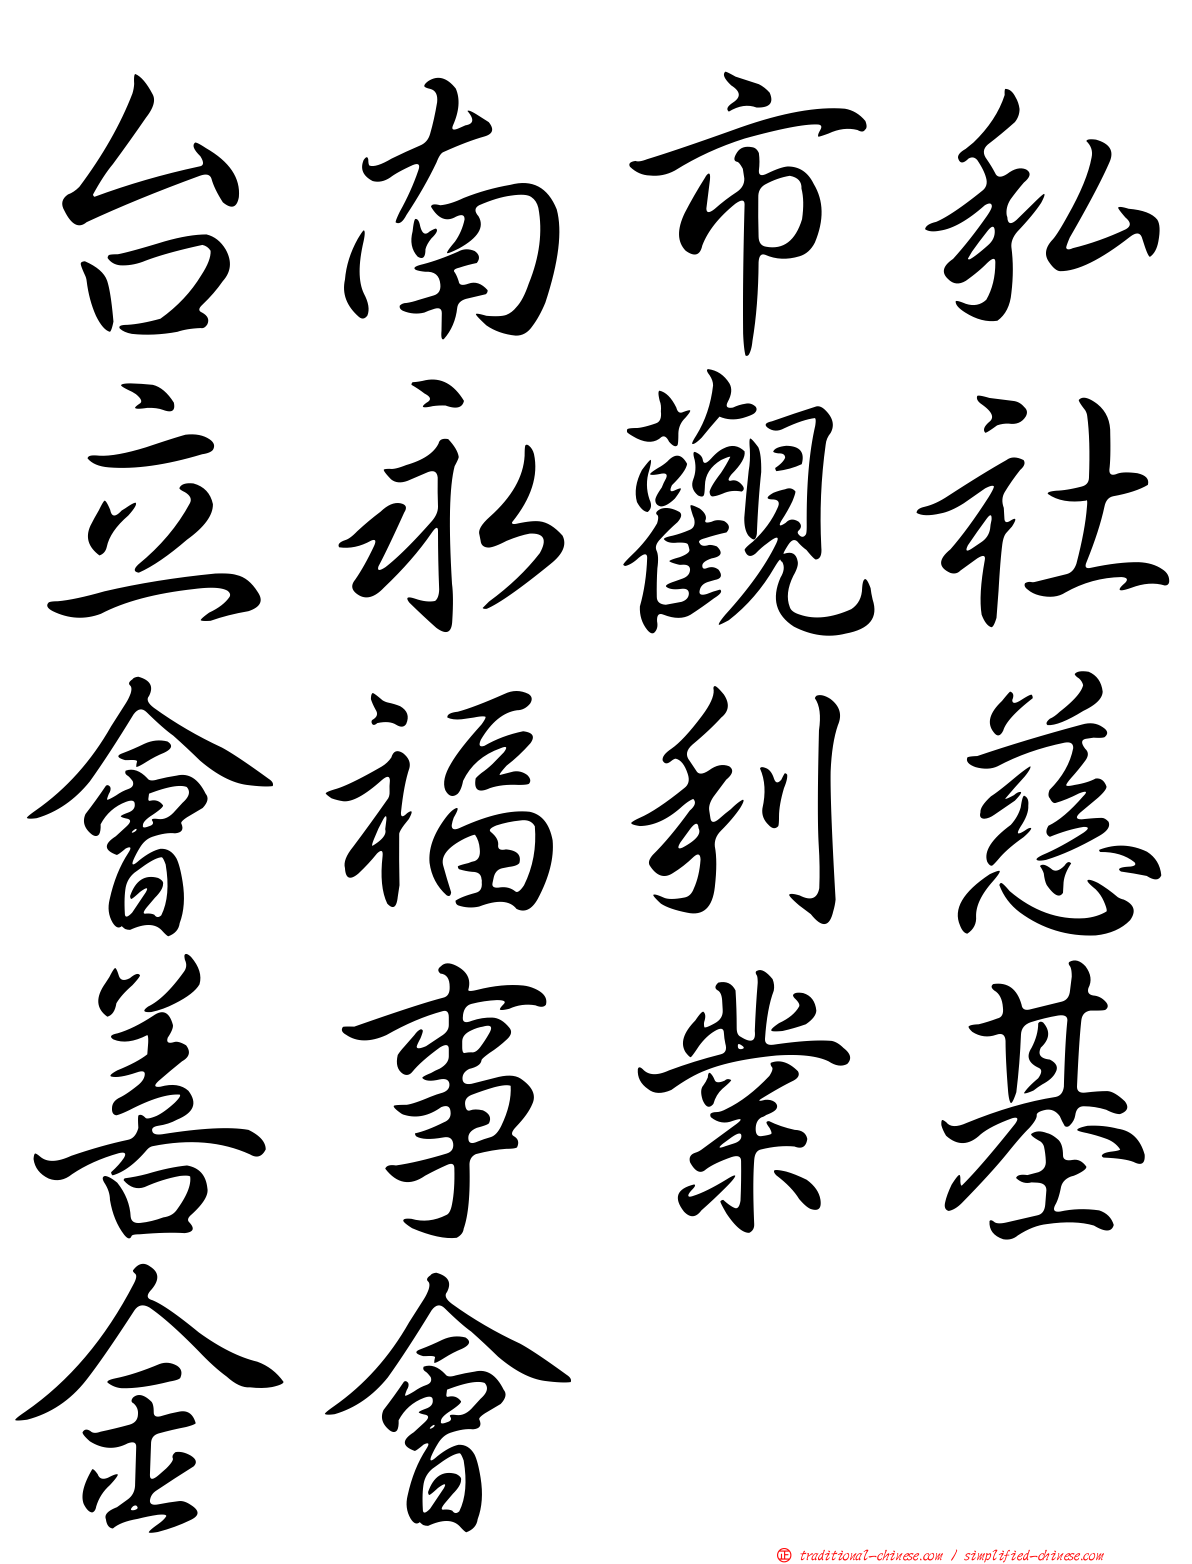 台南市私
立永觀社
會福利慈
善事業基
金會
㊣ traditional-chinese.com / simplified-chinese.com